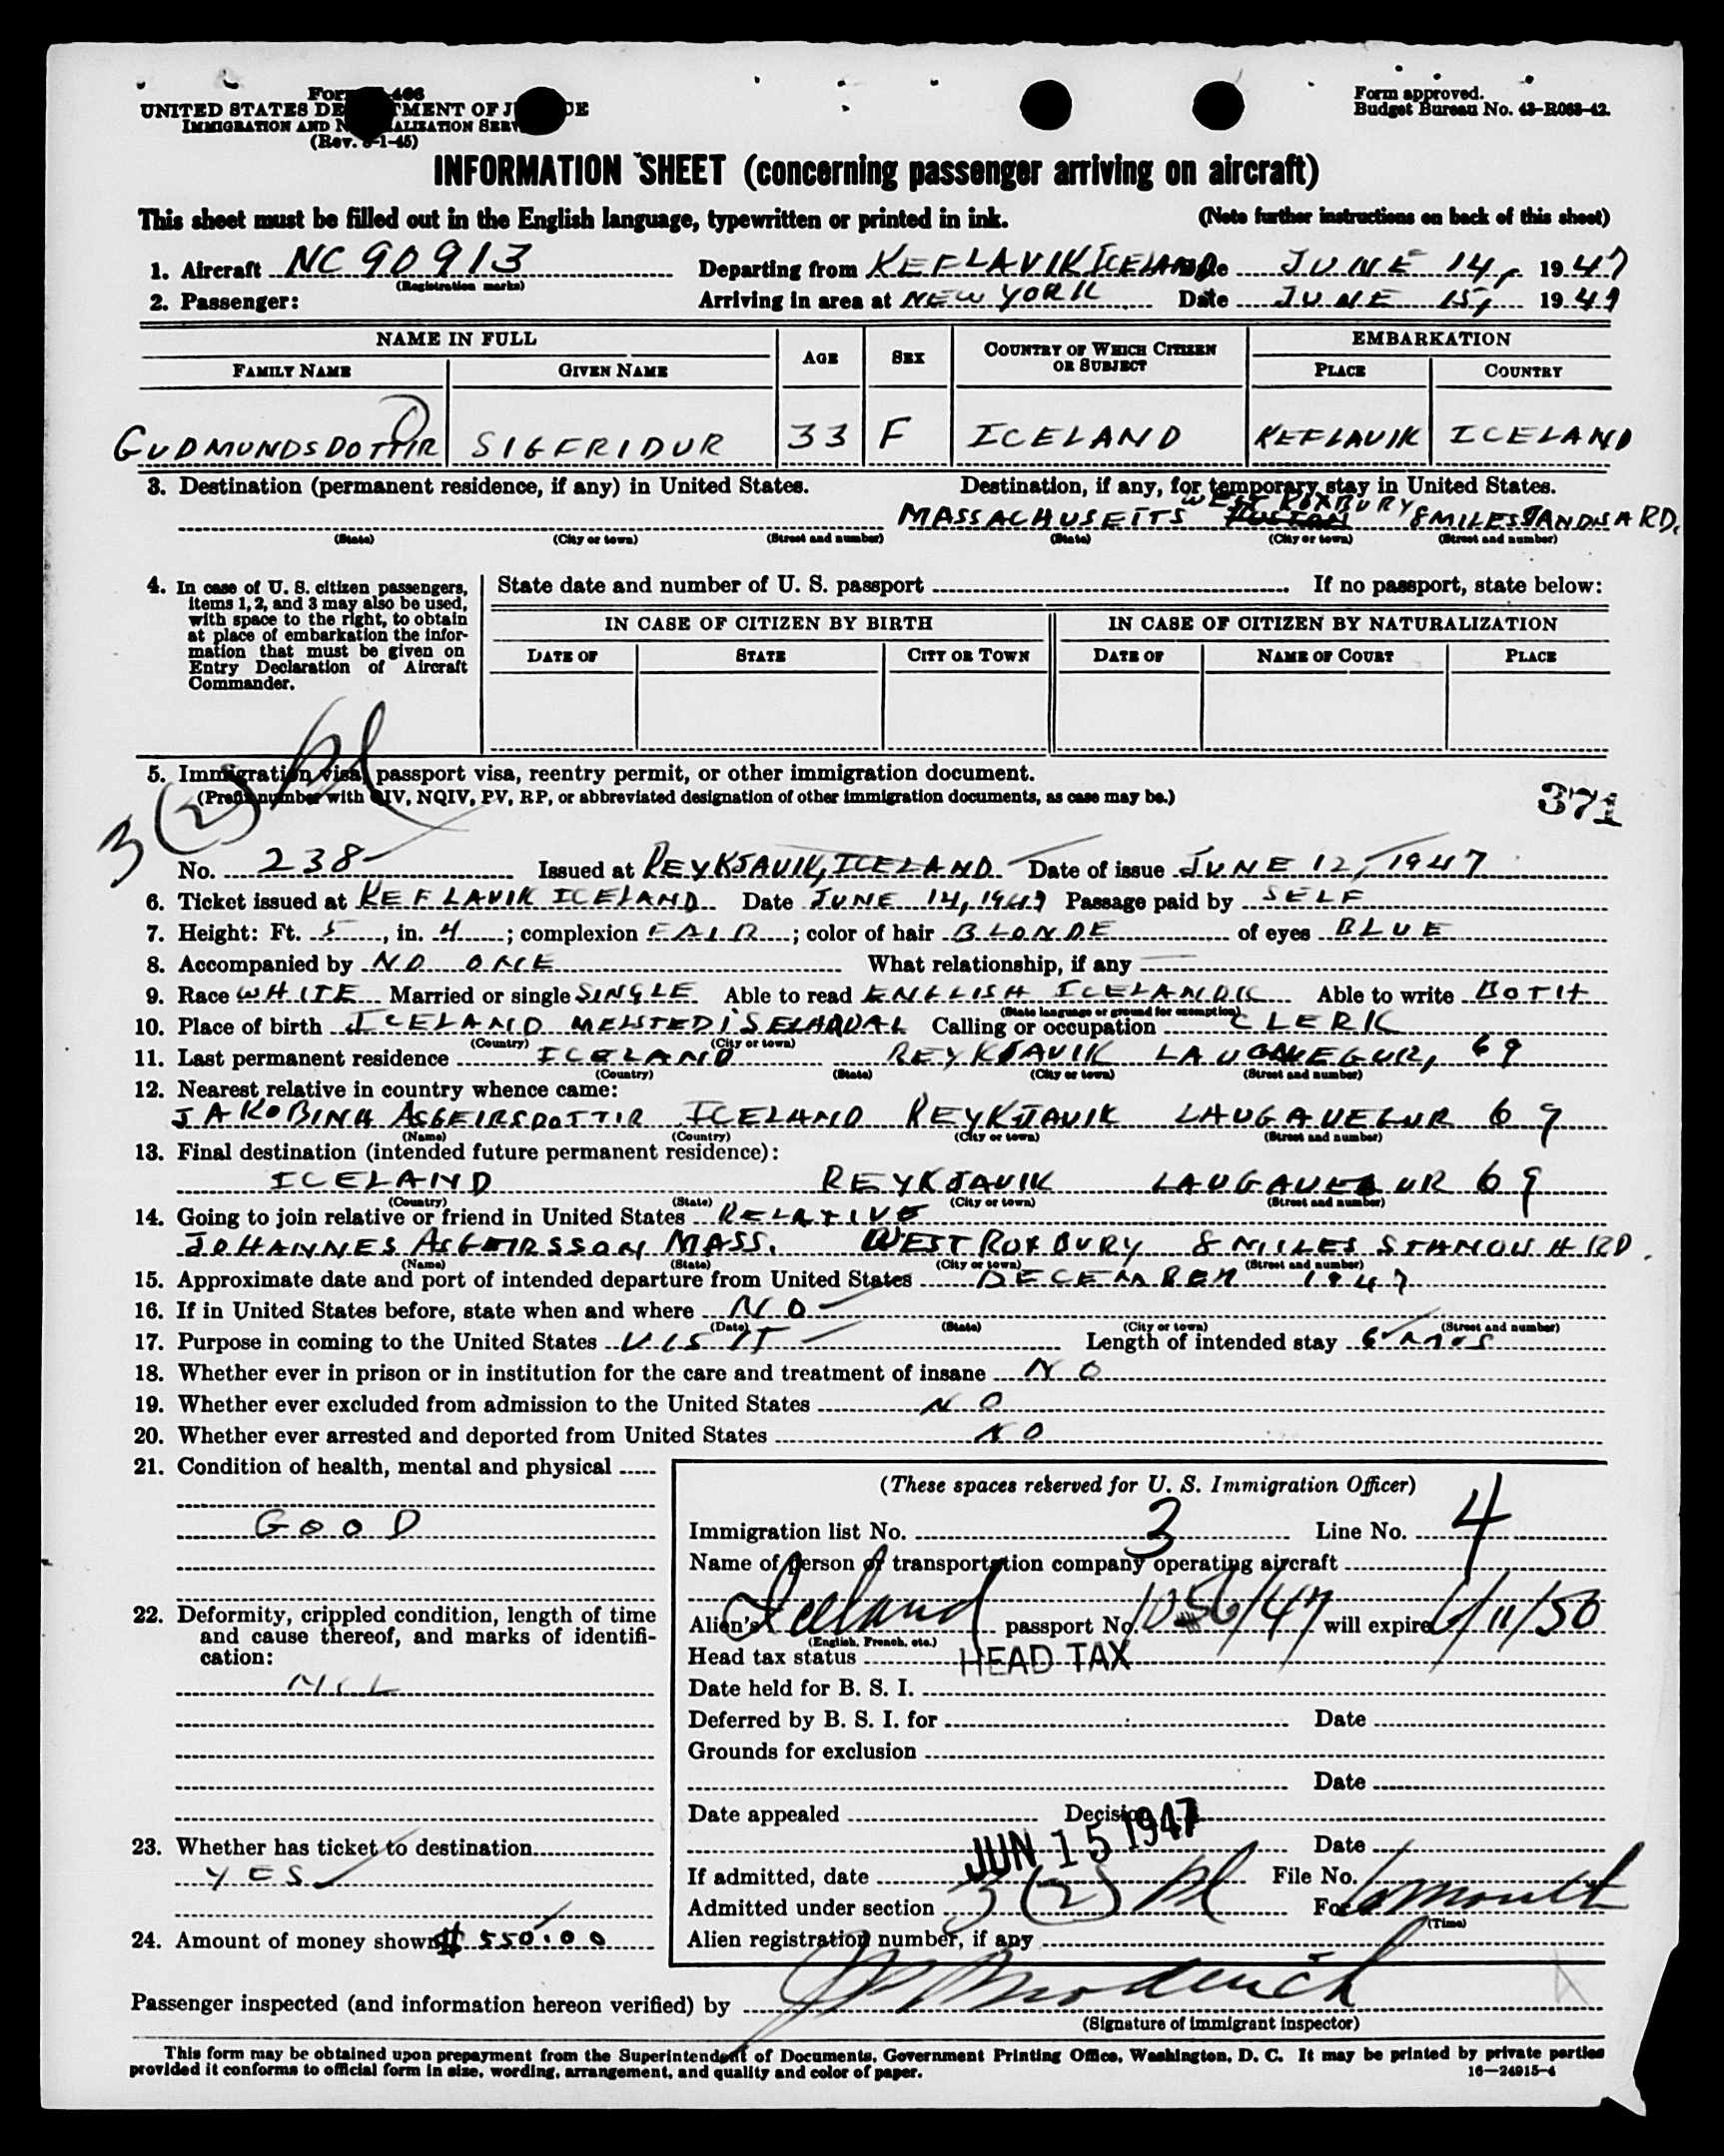 UNITED STATES DE TMENT OF J CE
IMMIGRATION AND N ALIZATION SERV
(Rev. -1-45)
Form approved.
Budget Bureau No. 43-R063-42.
INFORMATION SHEET (concerning passenger arriving on aircraft)
This sheet must be filled out in the English language, typewritten or printed in ink. (Note further instructions on back of this sheet)
1. Aircraft NC90913 Departing from KEFLAVIK ICELAND JUNE 14, 1947
(Registration marks)
2. Passenger: Arriving in area at NEW YORK Date JUNE 15, 1947
NAME IN FULL AGE SEX COUNTRY OF WHICH CITIZEN OR SUBJECT EMBARKATION
FAMILY NAME GIVEN NAME PLACE COUNTRY
GUDMUNDSDOTTIR SIGFRIDUR 33 F ICELAND KEFLAVIK ICELAND
3. Destination (permanent residence, if any) in United States. Destination, if any, for temporary stay in United States.
WEST ROXBURY
MASSACHUSETTS BOSTON 8 MILES RD.
(State) (City or town) (Street and number) (State) (City or town) (Street and number)
4. In case of U. S. citizen passengers,
items 1, 2, and 3 may also be used,
with space to the right, to obtain
at place of embarkation the infor-
mation that must be given on
Entry Declaration of Aircraft
Commander.
State date and number of U. S. passport If no passport, state below:
IN CASE OF CITIZEN BY BIRTH IN CASE OF CITIZEN BY NATURALIZATION
DATE OF STATE CITY OR TOWN DATE OF NAME OF COURT PLACE
5. Immigration visa, passport visa, reentry permit, or other immigration document.
(Prefix number with QIV, NQIV, PV, RP, or abbreviated designation of other immigration documents, as case may be.)
371
3(2)
No. 238 Issued at REYKJAVIK, ICELAND Date of issue JUNE 12, 1947
6. Ticket issued at KEFLAVIK ICELAND Date JUNE 14, 1947 Passage paid by SELF
7. Height: Ft. 5, in. 4; complexion FAIR; color of hair BLONDE of eyes BLUE
8. Accompanied by NO ONE What relationship, if any
9. Race WHITE Married or single SINGLE Able to read ENGLISH ICELANDIC Able to write BOTH
(State language or ground for exemption)
10. Place of birth ICELAND Calling or occupation CLERK
(Country) (City or town)
11. Last permanent residence ICELAND REYKJAVIK LAUGAVEGUR, 69
(Country) (State) (City or town) (Street and number)
12. Nearest relative in country whence came:
JAKOBINA ASGEIRSDOTTIR ICELAND REYKJAVIK LAUGAVEGUR 69
(Name) (Country) (City or town) (Street and number)
13. Final destination (intended future permanent residence):
ICELAND REYKJAVIK LAUGAVEGUR 69
(Country) (State) (City or town) (Street and number)
14. Going to join relative or friend in United States RELATIVE
JOHANNES ASGEIRSSON MASS. WEST ROXBURY 8 MILES RD.
(Name) (State) (City or town) (Street and number)
15. Approximate date and port of intended departure from United States DECEMBER 1947
16. If in United States before, state when and where NO
(Date) (State) (City or town) (Street and number)
17. Purpose in coming to the United States VISIT Length of intended stay 6 MOS
18. Whether ever in prison or in institution for the care and treatment of insane NO
19. Whether ever excluded from admission to the United States NO
20. Whether ever arrested and deported from United States NO
21. Condition of health, mental and physical
GOOD
22. Deformity, crippled condition, length of time
and cause thereof, and marks of identifi-
cation:
NIL
23. Whether has ticket to destination
YES
24. Amount of money shown $ 550.00
(These spaces reserved for U. S. Immigration Officer)
Immigration list No. 3 Line No. 4
Name of person or transportation company operating aircraft
Alien's Iceland passport No. 1056/47 will expire 6/11/50
(English, French, etc.)
Head tax status HEAD TAX
Date held for B. S. I.
Deferred by B. S. I. for Date
Grounds for exclusion
Date
Date appealed Decision
Date
If admitted, date JUN 15 1947 File No.
Admitted under section 3(2) For 6 months
(Time)
Alien registration number, if any
Passenger inspected (and information hereon verified) by
(Signature of immigrant inspector)
This form may be obtained upon prepayment from the Superintendent of Documents, Government Printing Office, Washington, D. C. It may be printed by private parties
provided it conforms to official form in size, wording, arrangement, and quality and color of paper. 16—24915-4